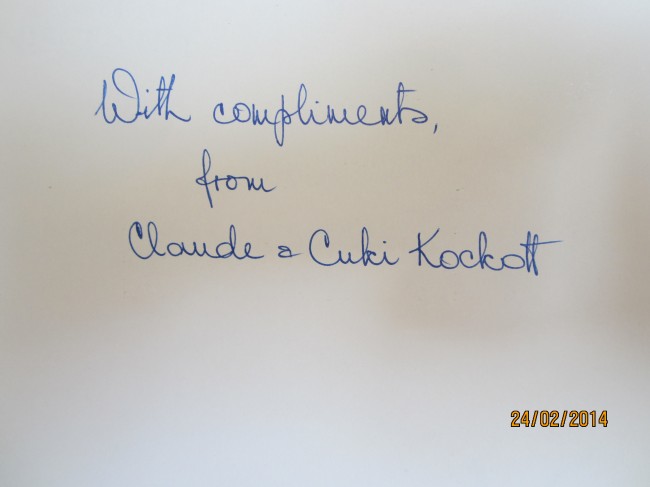 With compliments,
from
Claude & Cuki Kockott
24/02/2014